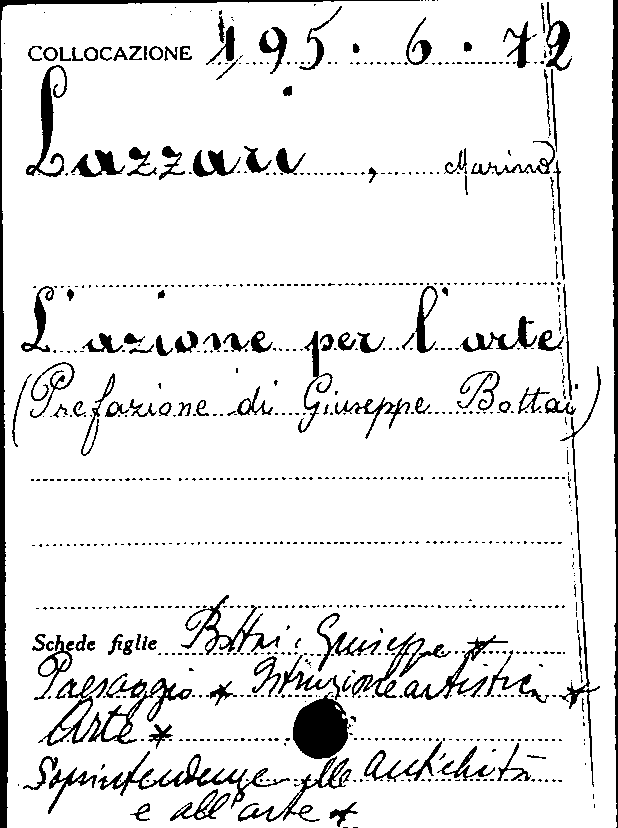 COLLOCAZIONE 195. 6. 72
Lazzari, Marino
L'azione per l'arte
(Prefazione di Giuseppe Bottai)
Schede figlie Bottai, Giuseppe *
Paesaggio * Istruzione artistica *
Arte *
Soprintendenze alle Antichità
e all'arte *